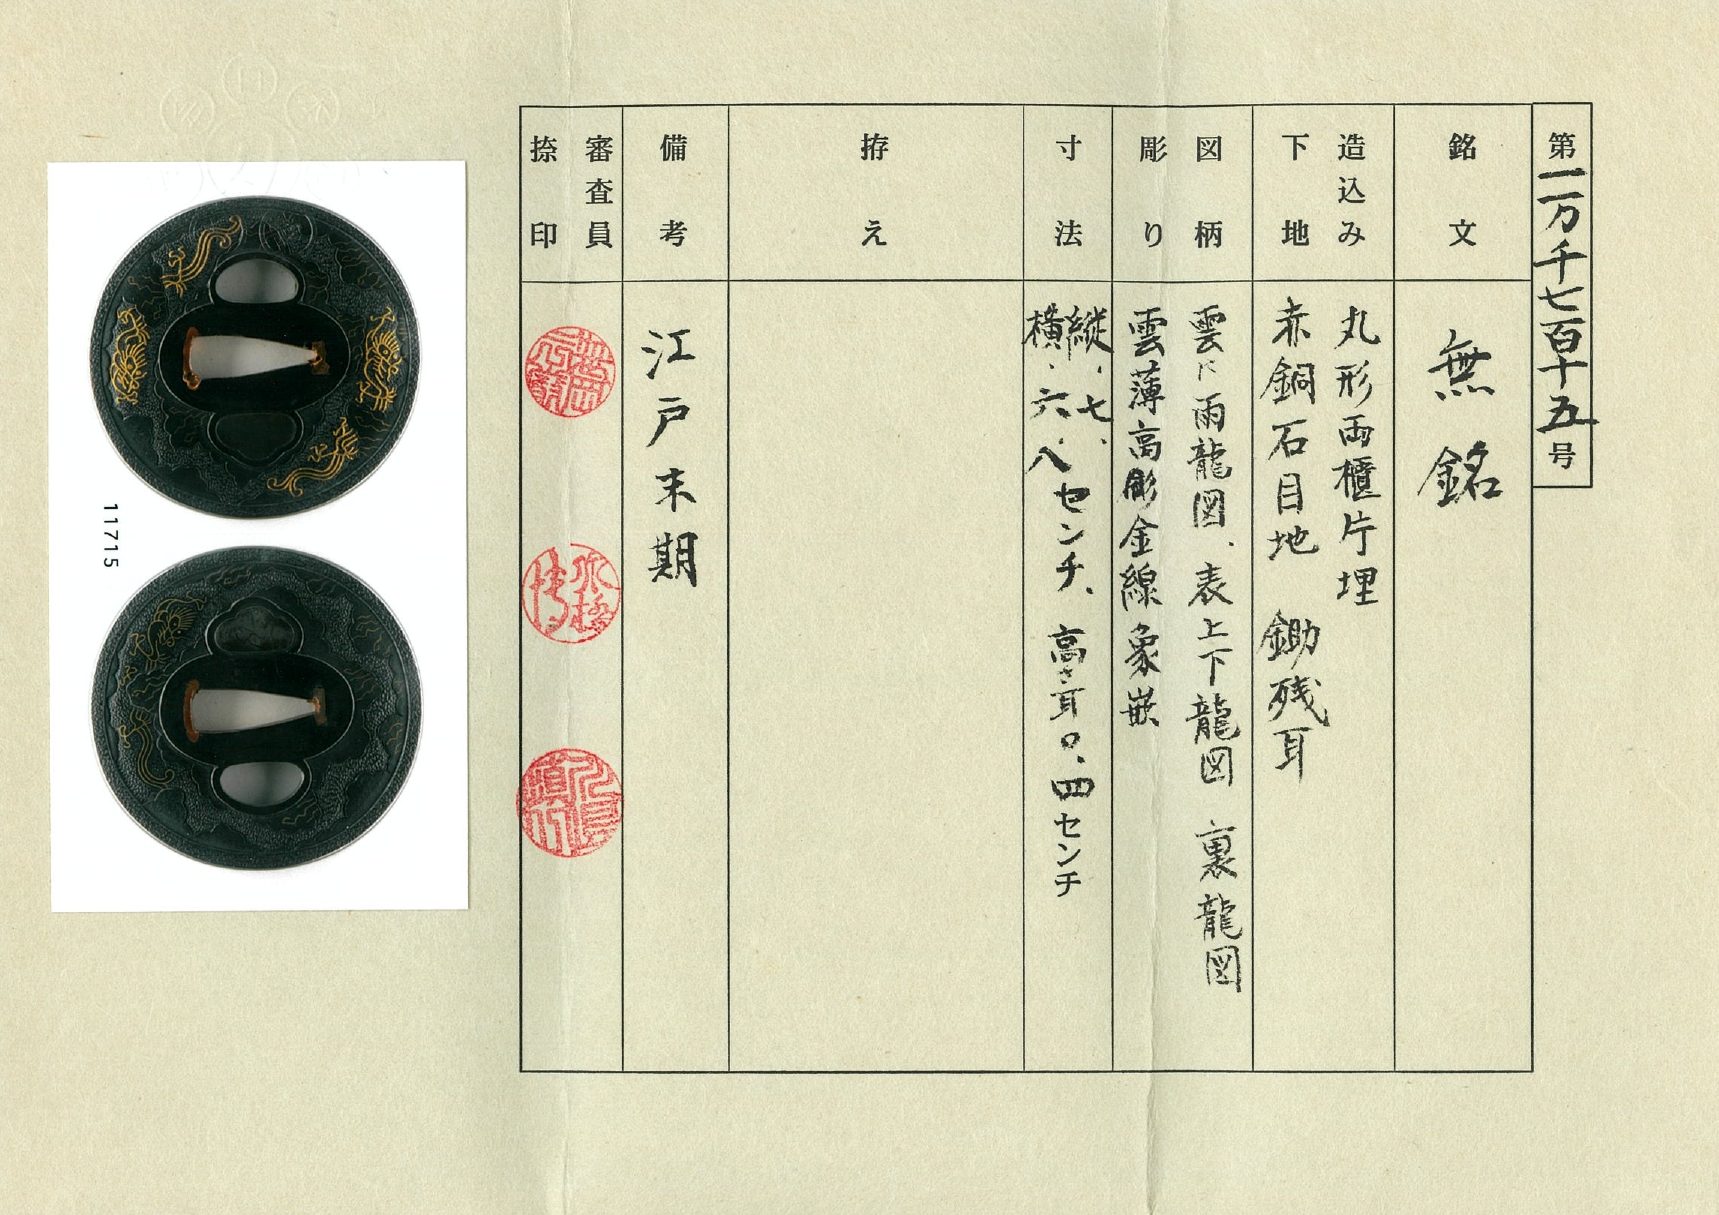 第一万千七百十五号
銘文
無銘
造込み
下地
丸形両櫃片埋
赤銅石目地 鋤残耳
図柄
彫り
雲に雨龍図、表上下龍図 裏龍図
雲薄高彫金線象嵌
寸法
縦、七、
横、六、八センチ、高さ耳〇、四センチ
拵え
備考
江戸末期
審査員
捺印
11715